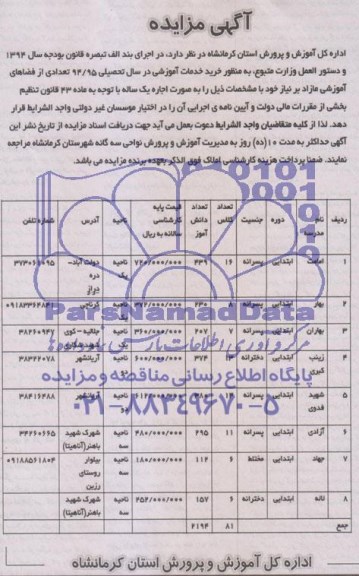 آگهی مزایده
اداره کل آموزش و پرورش استان کرمانشاه در نظر دارد، در اجرای بند الف تبصره قانون بودجه سال ۱۳۹۴
و دستور العمل وزارت متبوع، به منظور خرید خدمات آموزشی در سال تحصیلی ۹۴/۹۵ تعدادی از فضاهای
آموزشی مازاد بر نیاز خود با مشخصات ذیل را به صورت اجاره یک ساله با توجه به ماده ۴۳ قانون تنظیم
بخشی از مقررات مالی دولت و آیین نامه ی اجرایی آن را در اختیار موسسان غیر دولتی واجد الشرایط قرار
دهد. لذا از کلیه متقاضیان واجد الشرایط دعوت بعمل می آید جهت دریافت اسناد مزایده از تاریخ نشر این
آگهی حداکثر به مدت ۱۰(ده) روز به مدیریت آموزش و پرورش نواحی سه گانه شهرستان کرمانشاه مراجعه
نمایند. ضمنا پرداخت هزینه کارشناسی املاک فوق الذکر بعهده برنده مزایده می باشد.
ردیف نام مدرسه دوره جنسیت تعداد کلاس تعداد دانش آموز قیمت پایه کارشناسی سالانه به ریال ناحیه آدرس شماره تلفن
۱ امامت ابتدایی پسرانه ۱۶ ۴۳۹ ناحیه یک دولت آباد- دره دراز
۲ بهار ابتدایی پسرانه ۸ ۲۳۰ ناحیه
۳ بهاران ابتدایی پسرانه ۷ ۲۰۷ ۳۶۰/۰۰۰/۰۰۰ ناحیه ۳۸۲۶۰۹۴۷
۴ زینب کبری ابتدایی دخترانه ۱۳ ۳۷۴ ۶۰۰/۰۰۰/۰۰۰ ناحیه آریاشهر ۳۸۴۲۲۰۷۸
۵ شهید فدوی ابتدایی پسرانه ناحیه ۳۸۴۱۶۴۸۸
۶ آزادی ابتدایی پسرانه ۱۱ ۲۹۵ ۴۸۰/۰۰۰/۰۰۰ ناحیه سه شهرک شهید باهنر(آناهیتا) ۳۴۲۶۰۶۶۵
۷ جهاد ابتدایی مختلط ۶ ۱۱۲ ۱۸۰/۰۰۰/۰۰۰ ناحیه سه بیلوار روستای رزین ۰۹۱۸۸۵۶۱۸۰۴
۸ لاله ابتدایی دخترانه ۶ ۱۵۷ ۲۵۲/۰۰۰/۰۰۰ ناحیه سه شهرک شهید باهنر(آناهیتا)
جمع ۸۱ ۲۱۹۴
ParsNamadData
پایگاه اطلاع رسانی مناقصه و مزایده
۰۲۱-۸۸۳۴۹۶۷۰-۵
اداره کل آموزش و پرورش استان کرمانشاه